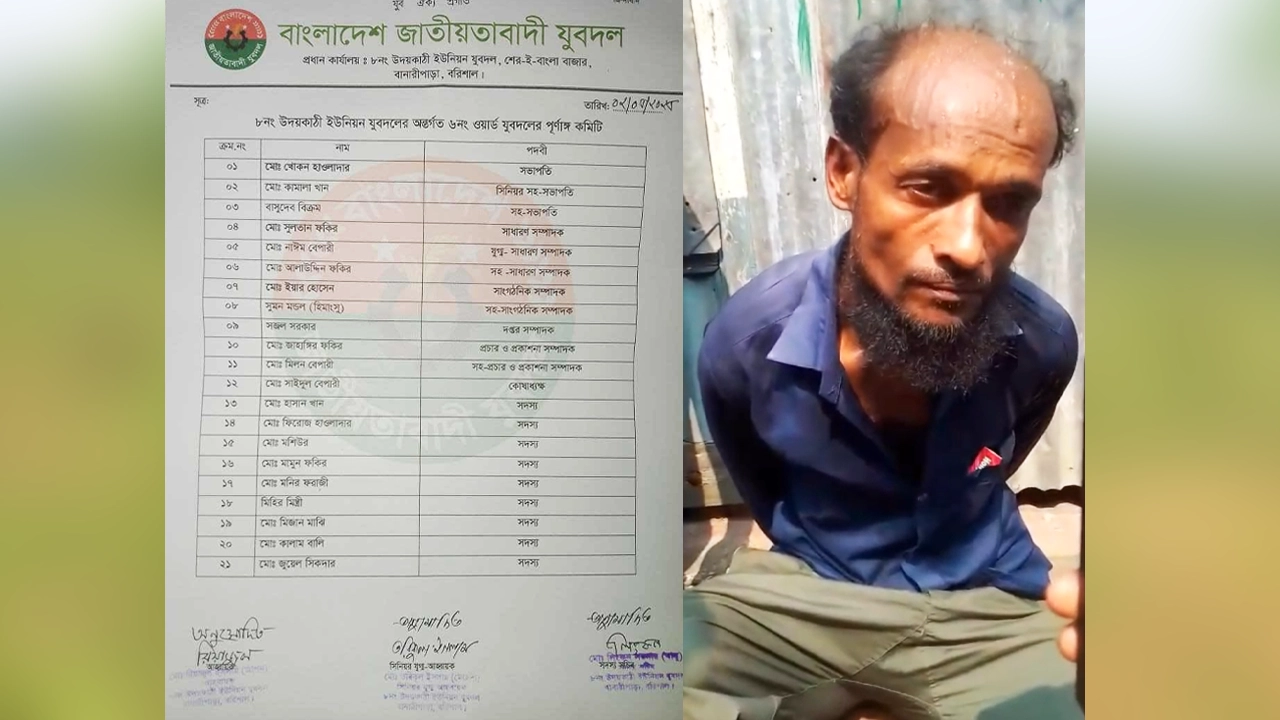 যুব ঐক্য প্রগতি
বাংলাদেশ জাতীয়তাবাদী যুবদল
প্রধান কার্যালয় ঃ ৮নং উদয়কাঠী ইউনিয়ন যুবদল, শের-ই-বাংলা বাজার,
বানারীপাড়া, বরিশাল।
সূত্র:
তারিখ:
৮নং উদয়কাঠী ইউনিয়ন যুবদলের অন্তর্গত ৬নং ওয়ার্ড যুবদলের পূর্ণাঙ্গ কমিটি
ক্রম.নং নাম পদবী
০১ মোঃ খোকন হাওলাদার সভাপতি
০২ মোঃ কামালা খান সিনিয়র সহ-সভাপতি
০৩ বাসুদেব বিক্রম সহ-সভাপতি
০৪ মোঃ সুলতান ফকির সাধারণ সম্পাদক
০৫ মোঃ নাঈম বেপারী যুগ্ম- সাধারণ সম্পাদক
০৬ মোঃ আলাউদ্দিন ফকির সহ -সাধারণ সম্পাদক
০৭ মোঃ ইয়ার হোসেন সাংগঠনিক সম্পাদক
০৮ সুমন মন্ডল (হিমাংসু) সহ-সাংগঠনিক সম্পাদক
০৯ সজল সরকার দপ্তর সম্পাদক
১০ মোঃ জাহাঙ্গির ফকির প্রচার ও প্রকাশনা সম্পাদক
১১ মোঃ মিলন বেপারী সহ-প্রচার ও প্রকাশনা সম্পাদক
১২ মোঃ সাইদুল বেপারী কোষাধ্যক্ষ
১৩ মোঃ হাসান খান সদস্য
১৪ মোঃ ফিরোজ হাওলাদার সদস্য
১৫ মোঃ মশিউর সদস্য
১৬ মোঃ মামুন ফকির সদস্য
১৭ মোঃ মনির ফরাজী সদস্য
১৮ মিহির মিস্ত্রী সদস্য
১৯ মোঃ মিজান মাঝি সদস্য
২০ মোঃ কালাম বালি সদস্য
২১ মোঃ জুয়েল সিকদার সদস্য
অনুমোদিত
আহ্বায়ক
সিনিয়র যুগ্ম-আহ্বায়ক
সদস্য সচিব
৮নং উদয়কাঠী ইউনিয়ন যুবদল
বানারীপাড়া, বরিশাল।